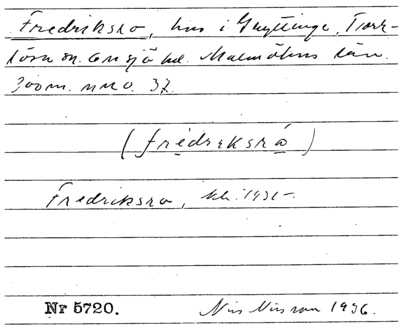 Fredriksro, hus i Gryttinge, Torr-
lösa sn. Onsjö hd. Malmöhus län.
300 m. nno. 37.
(frèdrɩksró)
Fredriksro, kk. 1931-.
Nr 5720. Nils Nilsson 1936.